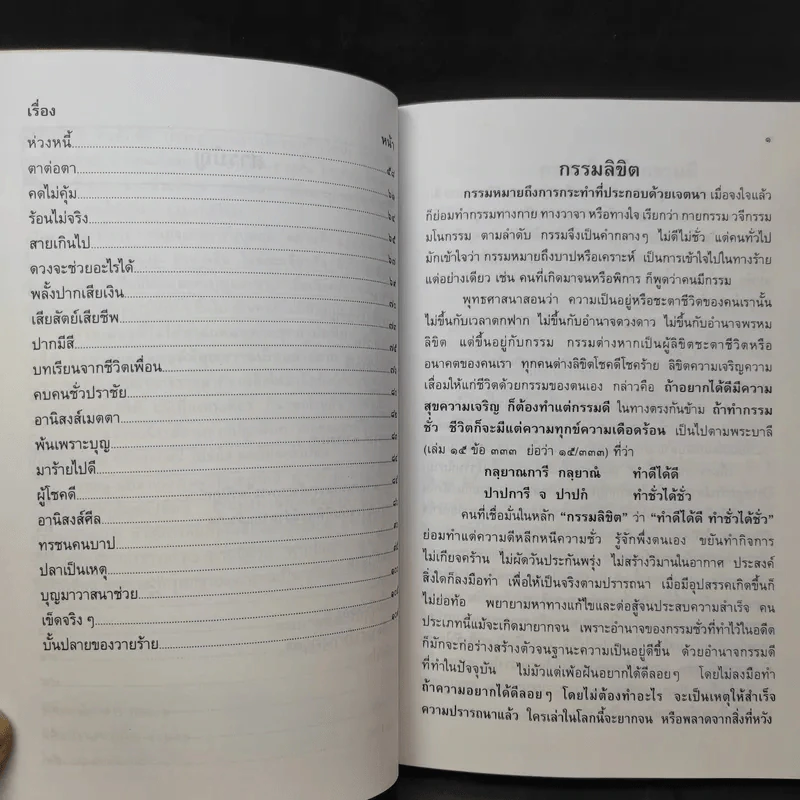 เรื่อง
หน้า
ห่วงหนี้
ตาต่อตา ๕๘
คดไม่คุ้ม ๖๑
ร้อนไม่จริง ๖๔
สายเกินไป ๖๕
ดวงจะช่วยอะไรได้ ๖๗
พลั้งปากเสียเงิน ๖๙
เสียสัตย์เสียชีพ ๗๑
ปากมีสี ๗๓
บทเรียนจากชีวิตเพื่อน ๗๕
คบคนชั่วปราชัย
อานิสงส์เมตตา
พ้นเพราะบุญ
มาร้ายไปดี
ผู้โชคดี
อานิสงส์ศีล
ทรชนคนบาป
ปลาเป็นเหตุ
บุญมาวาสนาช่วย
เข็ดจริง ๆ
บั้นปลายของวายร้าย
๑
กรรมลิขิต
กรรมหมายถึงการกระทำที่ประกอบด้วยเจตนา เมื่อจงใจแล้ว
ก็ย่อมทำกรรมทางกาย ทางวาจา หรือทางใจ เรียกว่า กายกรรม วจีกรรม
มโนกรรม ตามลำดับ กรรมจึงเป็นคำกลางๆ ไม่ดีไม่ชั่ว แต่คนทั่วไป
มักเข้าใจว่า กรรมหมายถึงบาปหรือเคราะห์ เป็นการเข้าใจไปในทางร้าย
แต่อย่างเดียว เช่น คนที่เกิดมาจนหรือพิการ ก็พูดว่าคนมีกรรม
พุทธศาสนาสอนว่า ความเป็นอยู่หรือชะตาชีวิตของคนเรานั้น
ไม่ขึ้นกับเวลาตกฟาก ไม่ขึ้นกับอำนาจดวงดาว ไม่ขึ้นกับอำนาจพรหม
ลิขิต แต่ขึ้นอยู่กับกรรม กรรมต่างหากเป็นผู้ลิขิตชะตาชีวิตหรือ
อนาคตของคนเรา ทุกคนต่างลิขิตโชคดีโชคร้าย ลิขิตความเจริญความ
เสื่อมให้แก่ชีวิตด้วยกรรมของตนเอง กล่าวคือ ถ้าอยากได้ดีมีความ
สุขความเจริญ ก็ต้องทำแต่กรรมดี ในทางตรงกันข้าม ถ้าทำกรรม
ชั่ว ชีวิตก็จะมีแต่ความทุกข์ความเดือดร้อน เป็นไปตามพระบาลี
(เล่ม ๑๕ ข้อ ๓๓๓ ย่อว่า ๑๕/๓๓๓) ที่ว่า
กลฺยาณการี กลฺยาณํ ทำดีได้ดี
ปาปการี จ ปาปกํ ทำชั่วได้ชั่ว
คนที่เชื่อมั่นในหลัก “กรรมลิขิต” ว่า “ทำดีได้ดี ทำชั่วได้ชั่ว”
ย่อมทำแต่ความดีหลีกหนีความชั่ว รู้จักพึ่งตนเอง ขยันทำกิจการ
ไม่เกียจคร้าน ไม่ผัดวันประกันพรุ่ง ไม่สร้างวิมานในอากาศ ประสงค์
สิ่งใดก็ลงมือทำ เพื่อให้เป็นจริงตามปรารถนา เมื่อมีอุปสรรคเกิดขึ้นก็
ไม่ย่อท้อ พยายามหาทางแก้ไขและต่อสู้จนประสบความสำเร็จ คน
ประเภทนี้แม้จะเกิดมายากจน เพราะอำนาจของกรรมชั่วที่ทำไว้ในอดีต
ก็มักจะก่อร่างสร้างตัวจนฐานะความเป็นอยู่ดีขึ้น ด้วยอำนาจกรรมดี
ที่ทำในปัจจุบัน ไม่มัวแต่เพ้อฝันอยากได้ดีลอยๆ โดยไม่ลงมือทำ
ถ้าความอยากได้ดีลอยๆ โดยไม่ต้องทำอะไร จะเป็นเหตุให้สำเร็จ
ความปรารถนาแล้ว ใครเล่าในโลกนี้จะยากจน หรือพลาดจากสิ่งที่หวัง